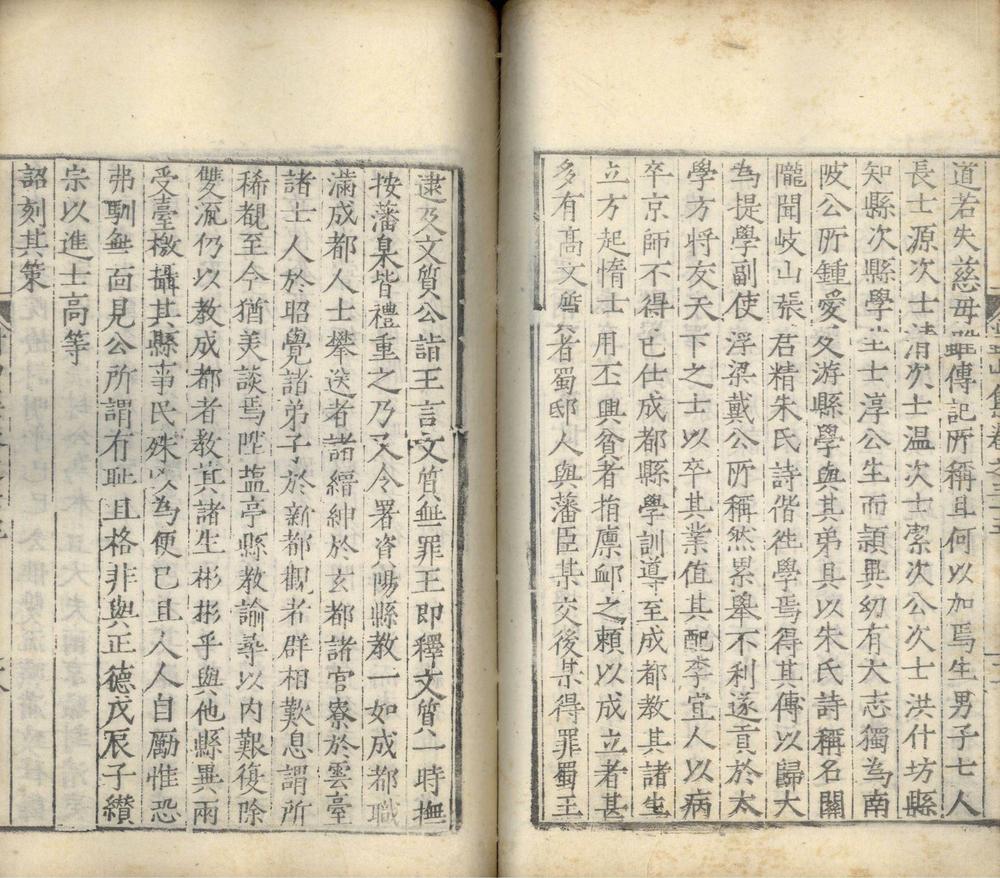 道若失慈母雖傳記所稱且何以加焉生男子七人
長士源次士清次士温次士潔次公次士洪什坊縣
知縣次縣學生士淳公生而頴異幼有大志獨為南
陂公所鍾愛又游縣學與其弟具以朱氏詩稱名關
隴聞岐山張君精朱氏詩偕徃學焉得其傳以歸大
為提學副使浮梁戴公所稱然累舉不利遂貢於太
學方將友天下之士以卒其業值其配李宜人以病
卒京師不得已仕成都縣學訓導至成都教其諸生
立方起惰士用丕興貧者捐廪邮之頼以成立者甚
多有髙文者蜀邸人與藩臣某交後某得罪蜀王
逮及文質公詣王言文質無罪王即釋文質一時撫
按藩臬皆禮重之乃又令署資陽縣教一如成都職
滿成都人士攀送者諸縉紳於玄都諸官寮於雲臺
諸士人於昭覺諸弟子於新都觀者群相歎息謂所
稀覩至今猶美談焉陞塩亭縣教諭尋以内艱復除
雙流仍以教成都者教其諸生彬彬乎與他縣異兩
受臺檄攝其縣事民殊以為便已且人人自勵惟恐
弗馴無面見公所謂有耻且格非與正德戊辰子纉
宗以進士高等
詔刻其策